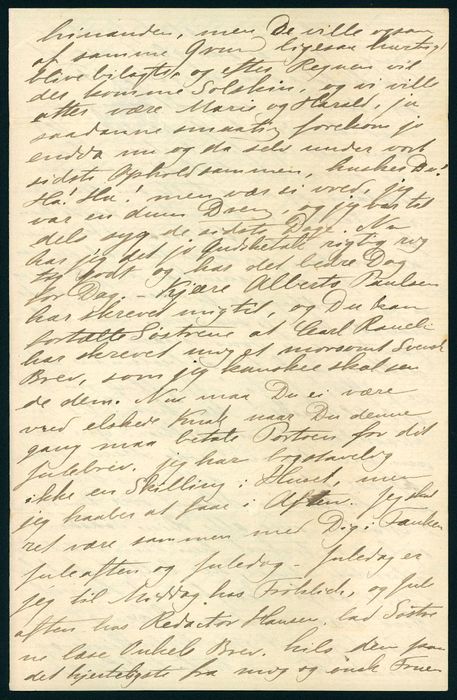 hinanden, men De ville ogsaa
af samme Grund ligesaa hurtigt
blive bilagte, og efter Regnen vil
der komme Solskin, og vi ville
atter være Marie og Harald, ja
saadanne smaating forekom jo
endda nu og da selv under vort
sidste Ophold sammen, husker Du!
Ha! Ha! men vær ei vred, jeg
var en dum Dreng, og jeg var til
dels syg de sidste Dage. Nu
har jeg det jo Gudskelov rigtig
godt og har det bedre Dag
for Dag. – Kjære Alberts Paulsen
har skrevet mig til, og Du kan
fortælle Søstrene at Carl
har skrevet mig et morsomt Svensk
Brev, som jeg kanskee skal sen
de dem. Nu maa Du ei være
vred elskede naar Du denne
gang maa betale Portoen for dit
Julebrev. jeg har bogstavelig
ikke en Skilling i Huset, men
jeg haaber at faae i Aften. Jeg skal
ret være sammen med Dig i Tanken
juleaften og juledag – juledag er
jeg til Middag hos Frölich, og jule
aften hos Redactør Hansen. lad Søstre
ne læse Onkels Brev. hils dem paa
det hjerteligste fra mig og ønsk